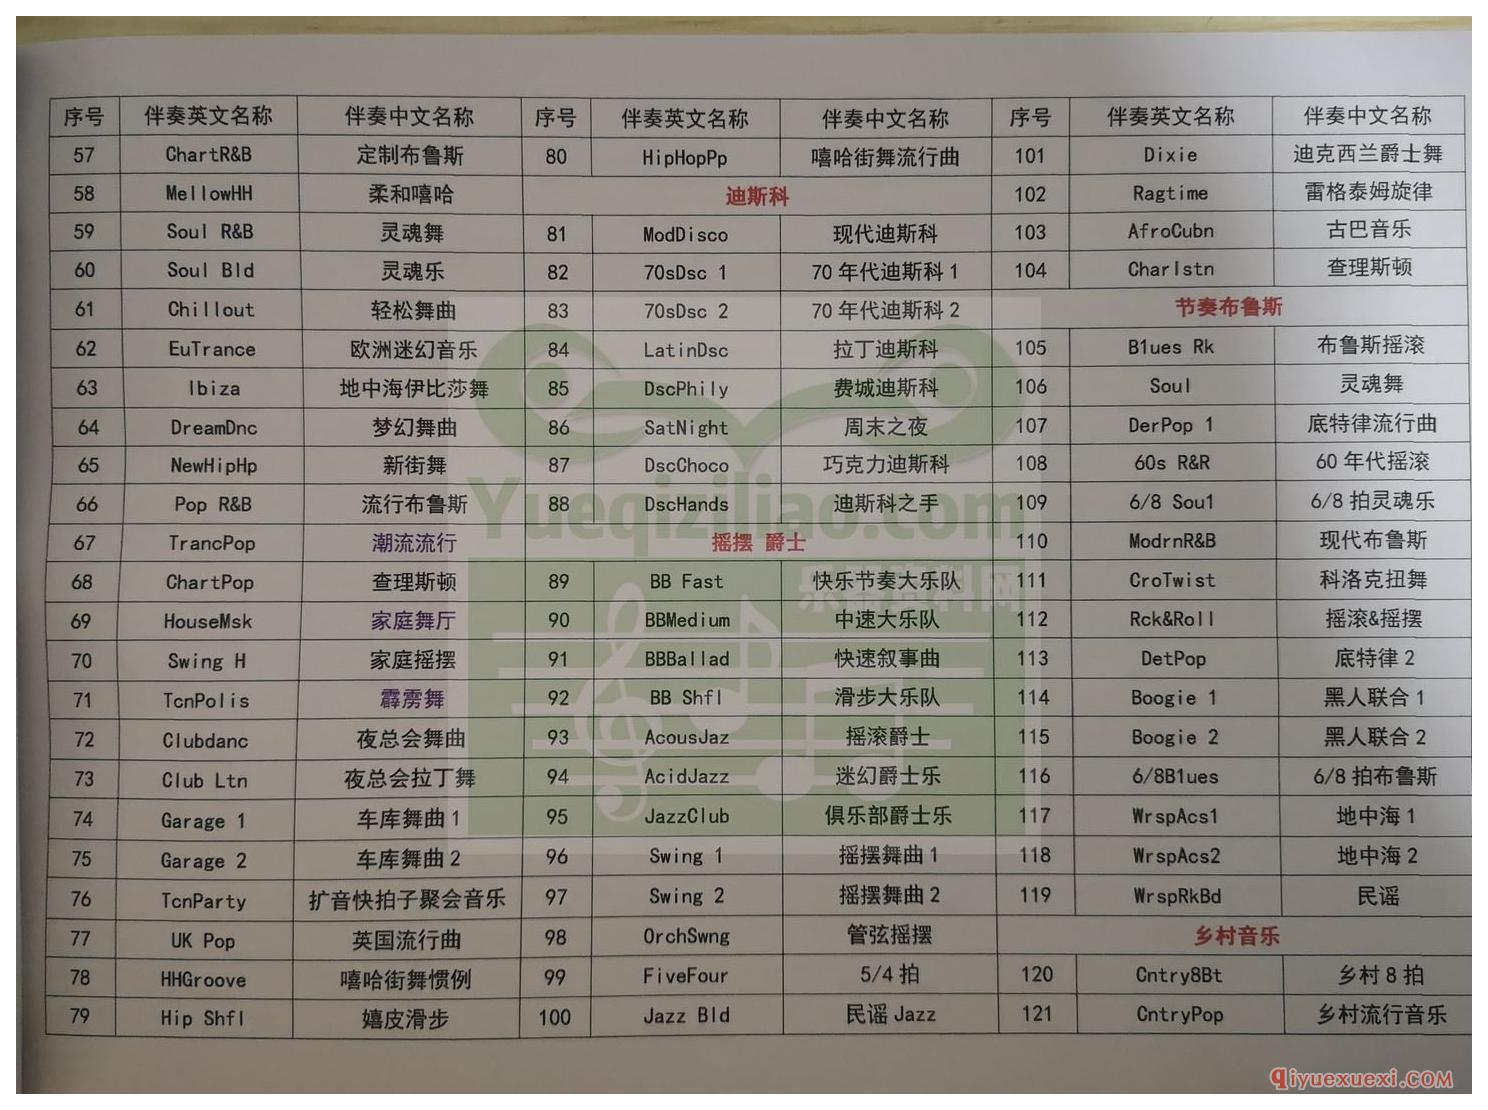 序号 伴奏英文名称 伴奏中文名称 序号 伴奏英文名称 伴奏中文名称 序号 伴奏英文名称 伴奏中文名称
57 ChartR&B 定制布鲁斯 80 HipHopPp 嘻哈街舞流行曲 101 Dixie 迪克西兰爵士舞
58 MellowHH 柔和嘻哈 迪斯科 102 Ragtime 雷格泰姆旋律
59 Soul R&B 灵魂舞 81 ModDisco 现代迪斯科 103 AfroCubn 古巴音乐
60 Soul Bld 灵魂乐 82 70sDsc 1 70年代迪斯科1 104 Charlstn 查理斯顿
61 Chillout 轻松舞曲 83 70sDsc 2 70年代迪斯科2 节奏布鲁斯
62 EuTrance 欧洲迷幻音乐 84 LatinDsc 拉丁迪斯科 105 B1ues Rk 布鲁斯摇滚
63 Ibiza 地中海伊比莎舞 85 DscPhily 费城迪斯科 106 Soul 灵魂舞
64 DreamDnc 梦幻舞曲 86 SatNight 周末之夜 107 DerPop 1 底特律流行曲
65 NewHipHp 新街舞 87 DscChoco 巧克力迪斯科 108 60s R&R 60年代摇滚
66 Pop R&B 流行布鲁斯 88 DscHands 迪斯科之手 109 6/8 Sou1 6/8拍灵魂乐
67 TrancPop 潮流流行 摇摆 爵士 110 ModrnR&B 现代布鲁斯
68 ChartPop 查理斯顿 89 BB Fast 快乐节奏大乐队 111 CroTwist 科洛克扭舞
69 HouseMsk 家庭舞厅 90 BBMedium 中速大乐队 112 Rck&Roll 摇滚&摇摆
70 Swing H 家庭摇摆 91 BBBallad 快速叙事曲 113 DetPop 底特律2
71 TcnPolis 霹雳舞 92 BB Shfl 滑步大乐队 114 Boogie 1 黑人联合1
72 Clubdanc 夜总会舞曲 93 AcousJaz 摇滚爵士 115 Boogie 2 黑人联合2
73 Club Ltn 夜总会拉丁舞 94 AcidJazz 迷幻爵士乐 116 6/8B1ues 6/8拍布鲁斯
74 Garage 1 车库舞曲1 95 JazzClub 俱乐部爵士乐 117 WrspAcs1 地中海1
75 Garage 2 车库舞曲2 96 Swing 1 摇摆舞曲1 118 WrspAcs2 地中海2
76 TcnParty 扩音快拍子聚会音乐 97 Swing 2 摇摆舞曲2 119 WrspRkBd 民谣
77 UK Pop 英国流行曲 98 OrchSwng 管弦摇摆 乡村音乐
78 HHGroove 嘻哈街舞惯例 99 FiveFour 5/4拍 120 Cntry8Bt 乡村8拍
79 Hip Shfl 嬉皮滑步 100 Jazz Bld 民谣Jazz 121 CntryPop 乡村流行音乐
Yueqiziliao.com
乐器资料网
Qiyuexuexi.COM